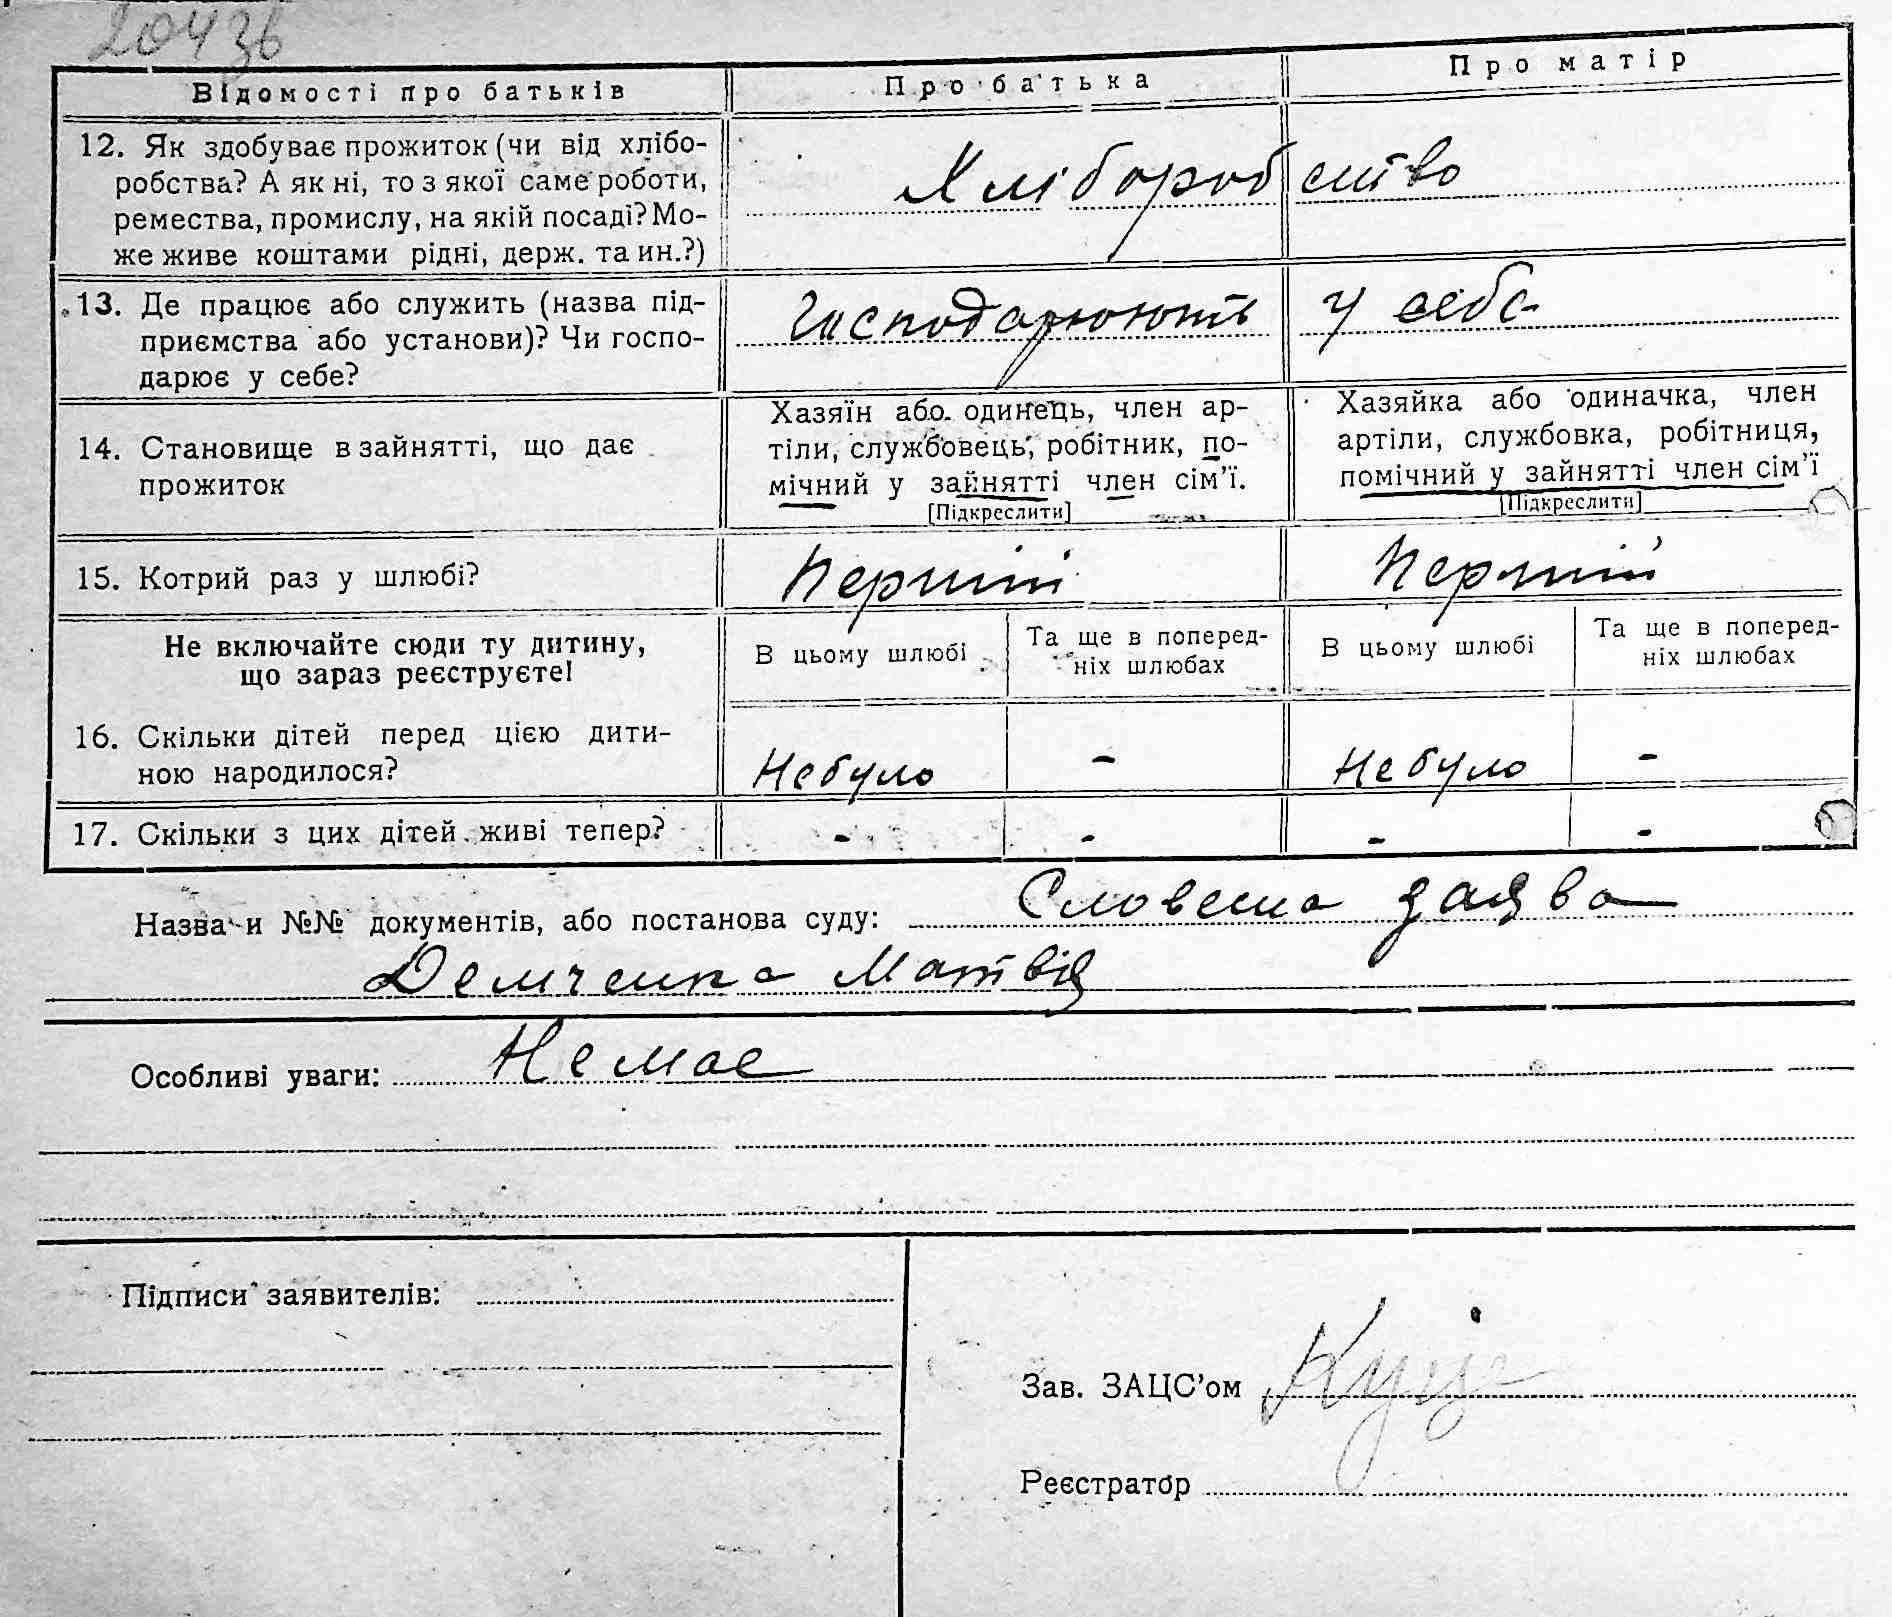 204 зв
Відомості про батьків
Про батька
Про матір
12. Як здобуває прожиток (чи від хлібо-
робства? А як ні, то з якої саме роботи,
ремества, промислу, на якій посаді? Мо-
же живе коштами рідні, держ. та ин.?)
Хліборобство
13. Де працює або служить (назва під-
приємства або установи)? Чи госпо-
дарює у себе?
Господарюють у себе
14. Становище в зайнятті, що дає
прожиток
Хазяїн або одинець, член ар-
тіли, службовець, робітник, по-
мічний у зайнятті член сім’ї.
[Підкреслити]
Хазяйка або одиначка, член
артіли, службовка, робітниця,
помічний у зайнятті член сім’ї
[Підкреслити]
15. Котрий раз у шлюбі?
Перший
Перший
Не включайте сюди ту дитину,
що зараз реєструєте!
В цьому шлюбі
Та ще в поперед-
ніх шлюбах
В цьому шлюбі
Та ще в поперед-
ніх шлюбах
16. Скільки дітей перед цією дити-
ною народилося?
Небуло - Небуло -
17. Скільки з цих дітей живі тепер? - - - -
Назва и №№ документів, або постанова суду: Словесна заява
Демченка Матвія
Особливі уваги: Немає
Підписи заявителів:
Зав. ЗАЦС’ом
Реєстратор